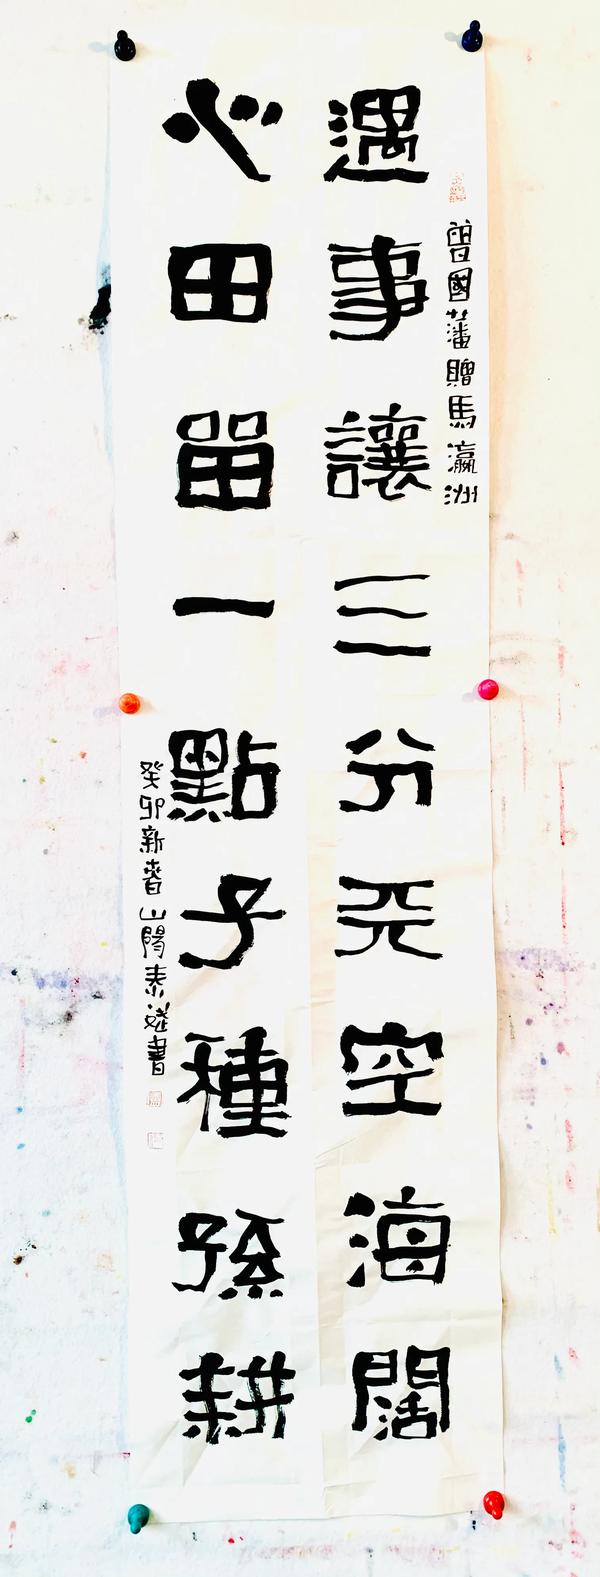 曾國藩贈馬瀛洲
遇事讓三分天空海闊
心田留一點子種孫耕
癸卯新春山陽泰書